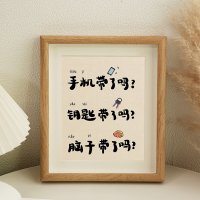 手机带了吗?
钥匙带了吗?
脑子带了吗?